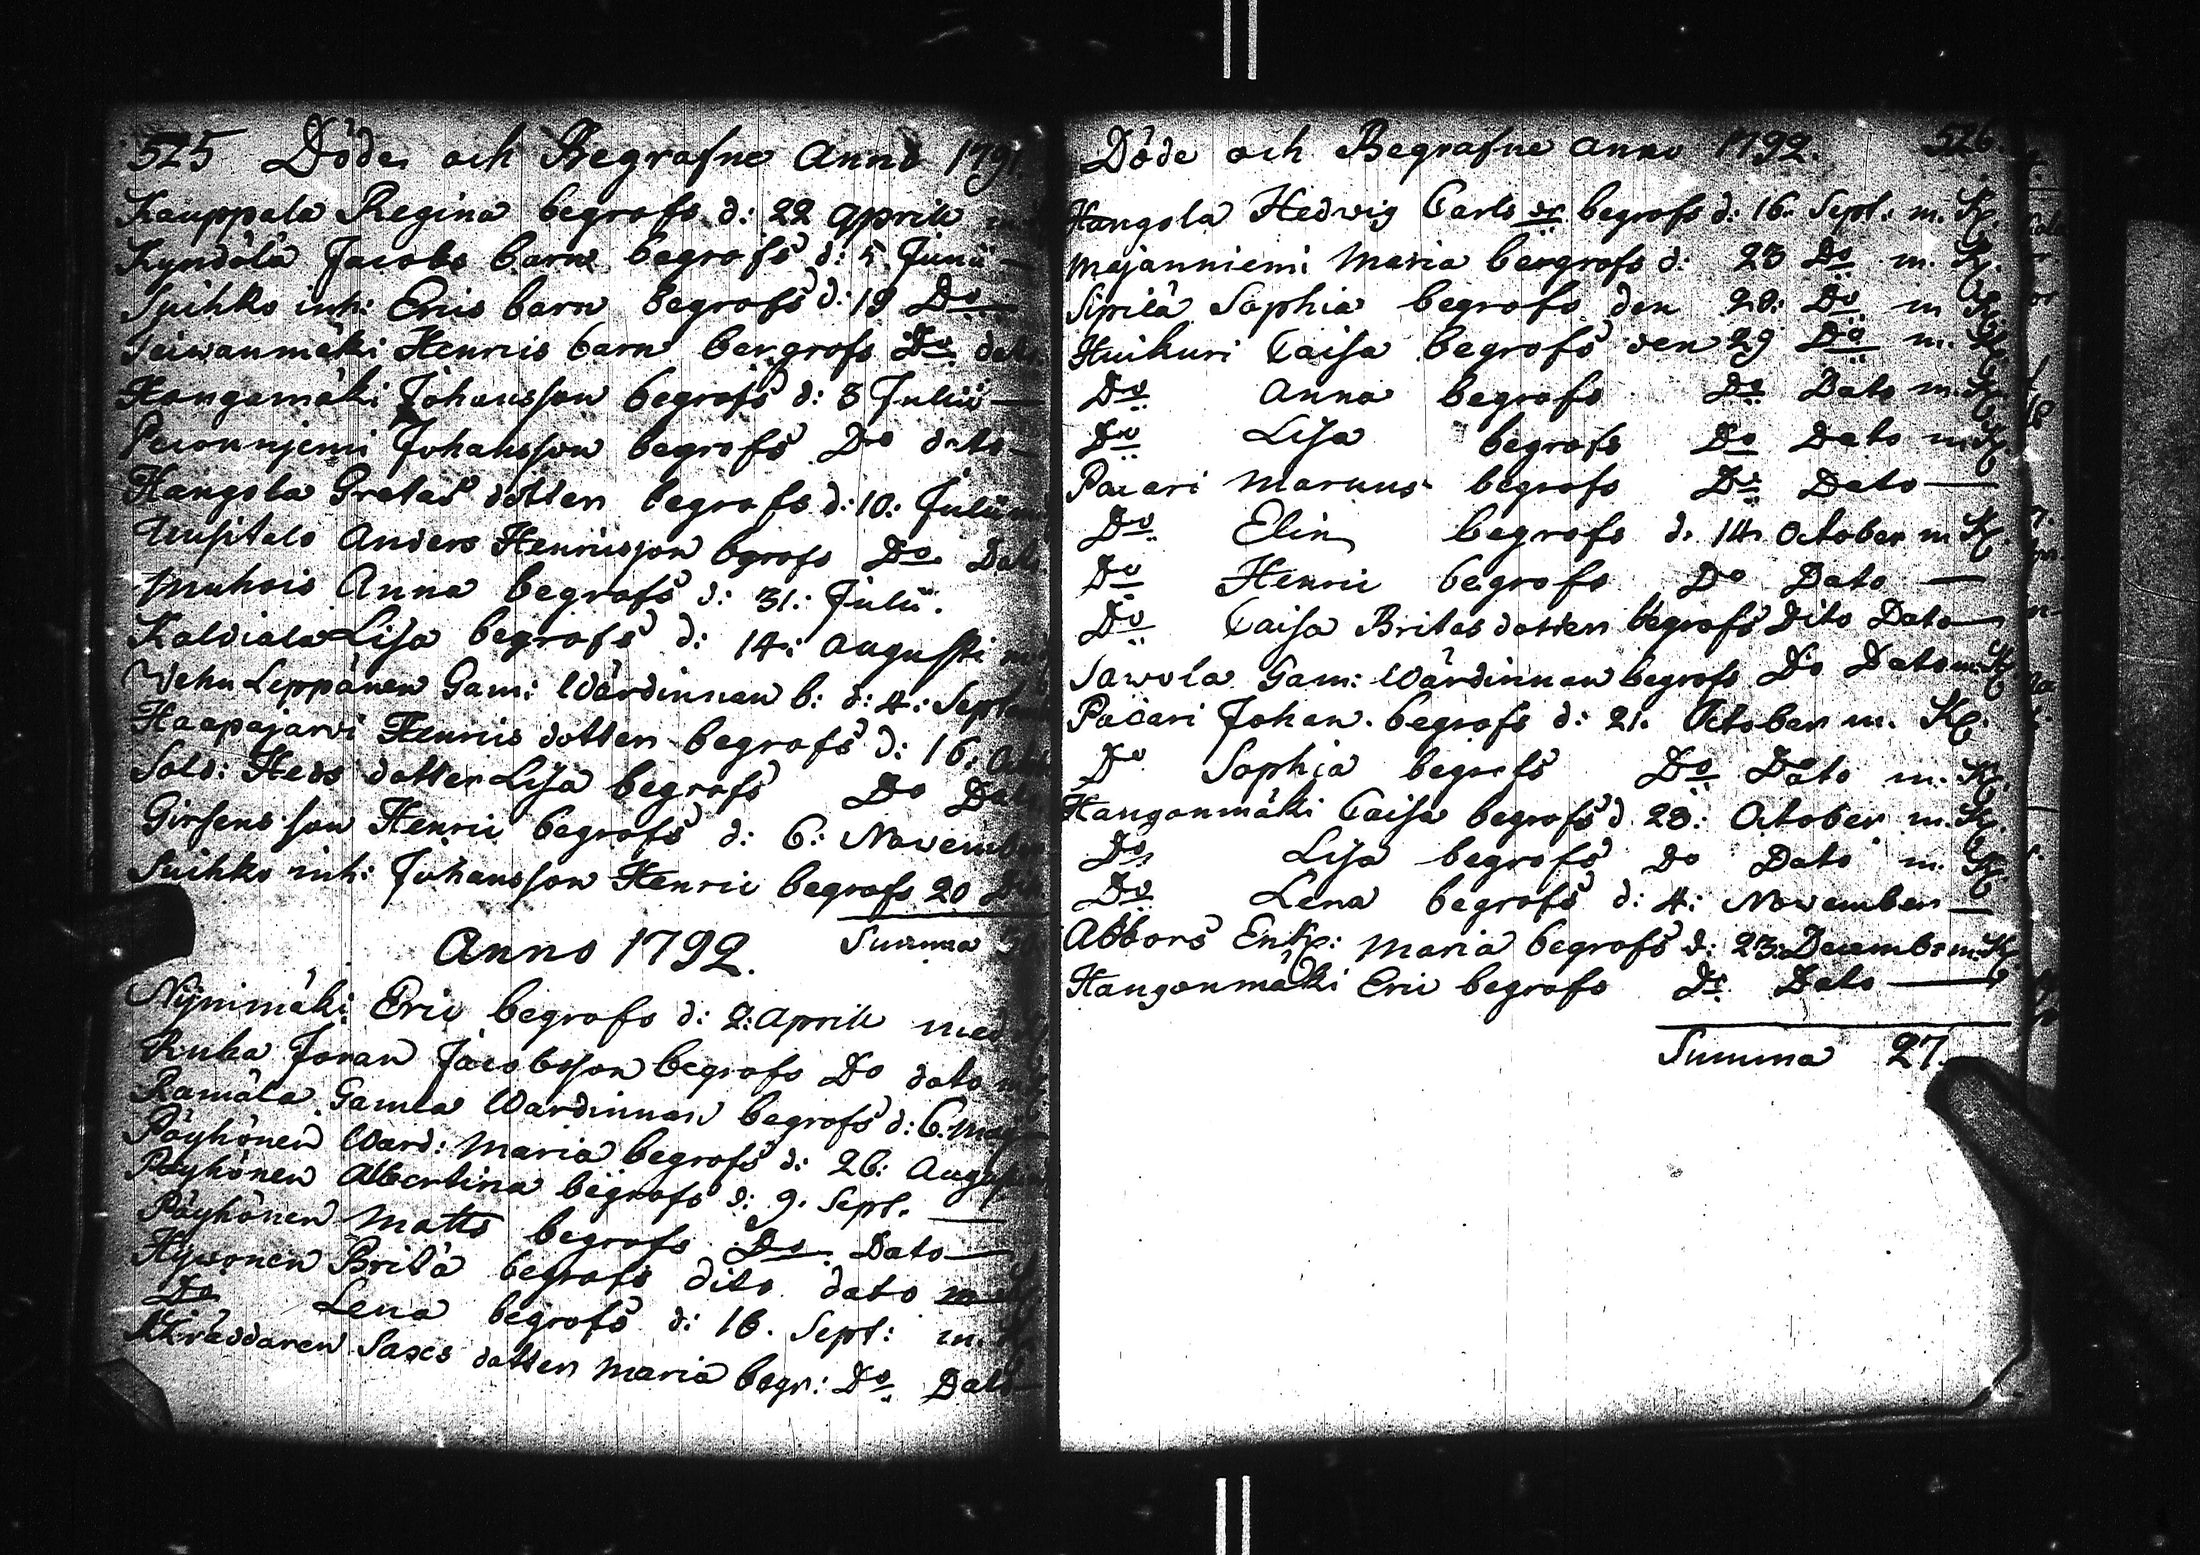 525 Döde och Begrafne Anno 1791.
Kauppala Regina begrofs d: 22 Aprill
Kyndölä Jacobs barn begrofs d: 5 Junii —
Suihko inh: Erics barn begrofs d: 19 Do
Teiwanmäki Henrics barn bergrofs Do dato
Hangamäki Johansson begrofs d: 3 Julii —
Johansson begrofs Do dato —
Hangola Gretas dotter begrofs d: 10: Julii
Uusitalo Anders Henricsson bgrofs Do Dato
Muhois Anna begrofs d: 31: Julii.
Kalviala Lisa begrofs d: 14: Augusti
Wehn Leppänen Gam: Wärdinnan b: d: 4: Sept
Haapajärvi Henrics dotter begrofs d: 16:
Sold: Heds dotter Lisa begrofs Do Dato
Girsens son Henric begrofs d: 6: November
Suihko inh: Johansson Henric begrofs 20 Do
Summa
Anno 1792.
Nijnimäki Eric begrofs d: 2: Aprill med
Ruha Joran Jacobsson begrofs Do dato
Ramäla Gamla Wardinnan begrofs d: 6. May
Pöyhönen Ward: Maria begrofs d: 26: Augusti
Pöyhönen Albertina begrofs d: 9. Sept. —
Pöyhönen Matts begrofs Do Dato —
Hywonen Brita begrofs dito dato
Do Lena begrofs d: 16. Sept: m. Kl.
Skräddaren Saxes dotter Maria begr: Do Dato —
Döde och Begrafne Anno 1792. 526
Hangola Hedwig Carls dr begrofs d: 16. Sept: m. Kl.
Majanniemi Maria bergrofs d: 23 Do m. Kl.
Sipilä Sophia begrofs den 28: Do m Kl
Huikuri Caisa begrofs den 29 Do m. Kl
Do Anna begrofs Do Dato m. Kl
Do Lisa begrofs Do Dato m. Kl
Pacari Marcus begrofs Do Dato —
Do Elin begrofs d. 14. October m Kl.
Do Henric begrofs Do Dato —
Do Caisa Britas dotter begrofs Dito Dato —
Sawola Gam: Wärdinnan begrofs Do Dato m. Kl
Pacari Johan. begrofs d: 21. October m. Kl.
Do Sophia begrofs Do Dato m. Kl.
Hanganmäki Caisa begrofs d 28: October m. Kl.
Do Lisa begrofs Do Dato m. Kl
Do Lena begrofs d: 4: November —
Abbors Enk: Maria begrofs d: 23: Decembr m. Kl
Hanganmäki Eric begrofs Do Dato —
Summa 27.